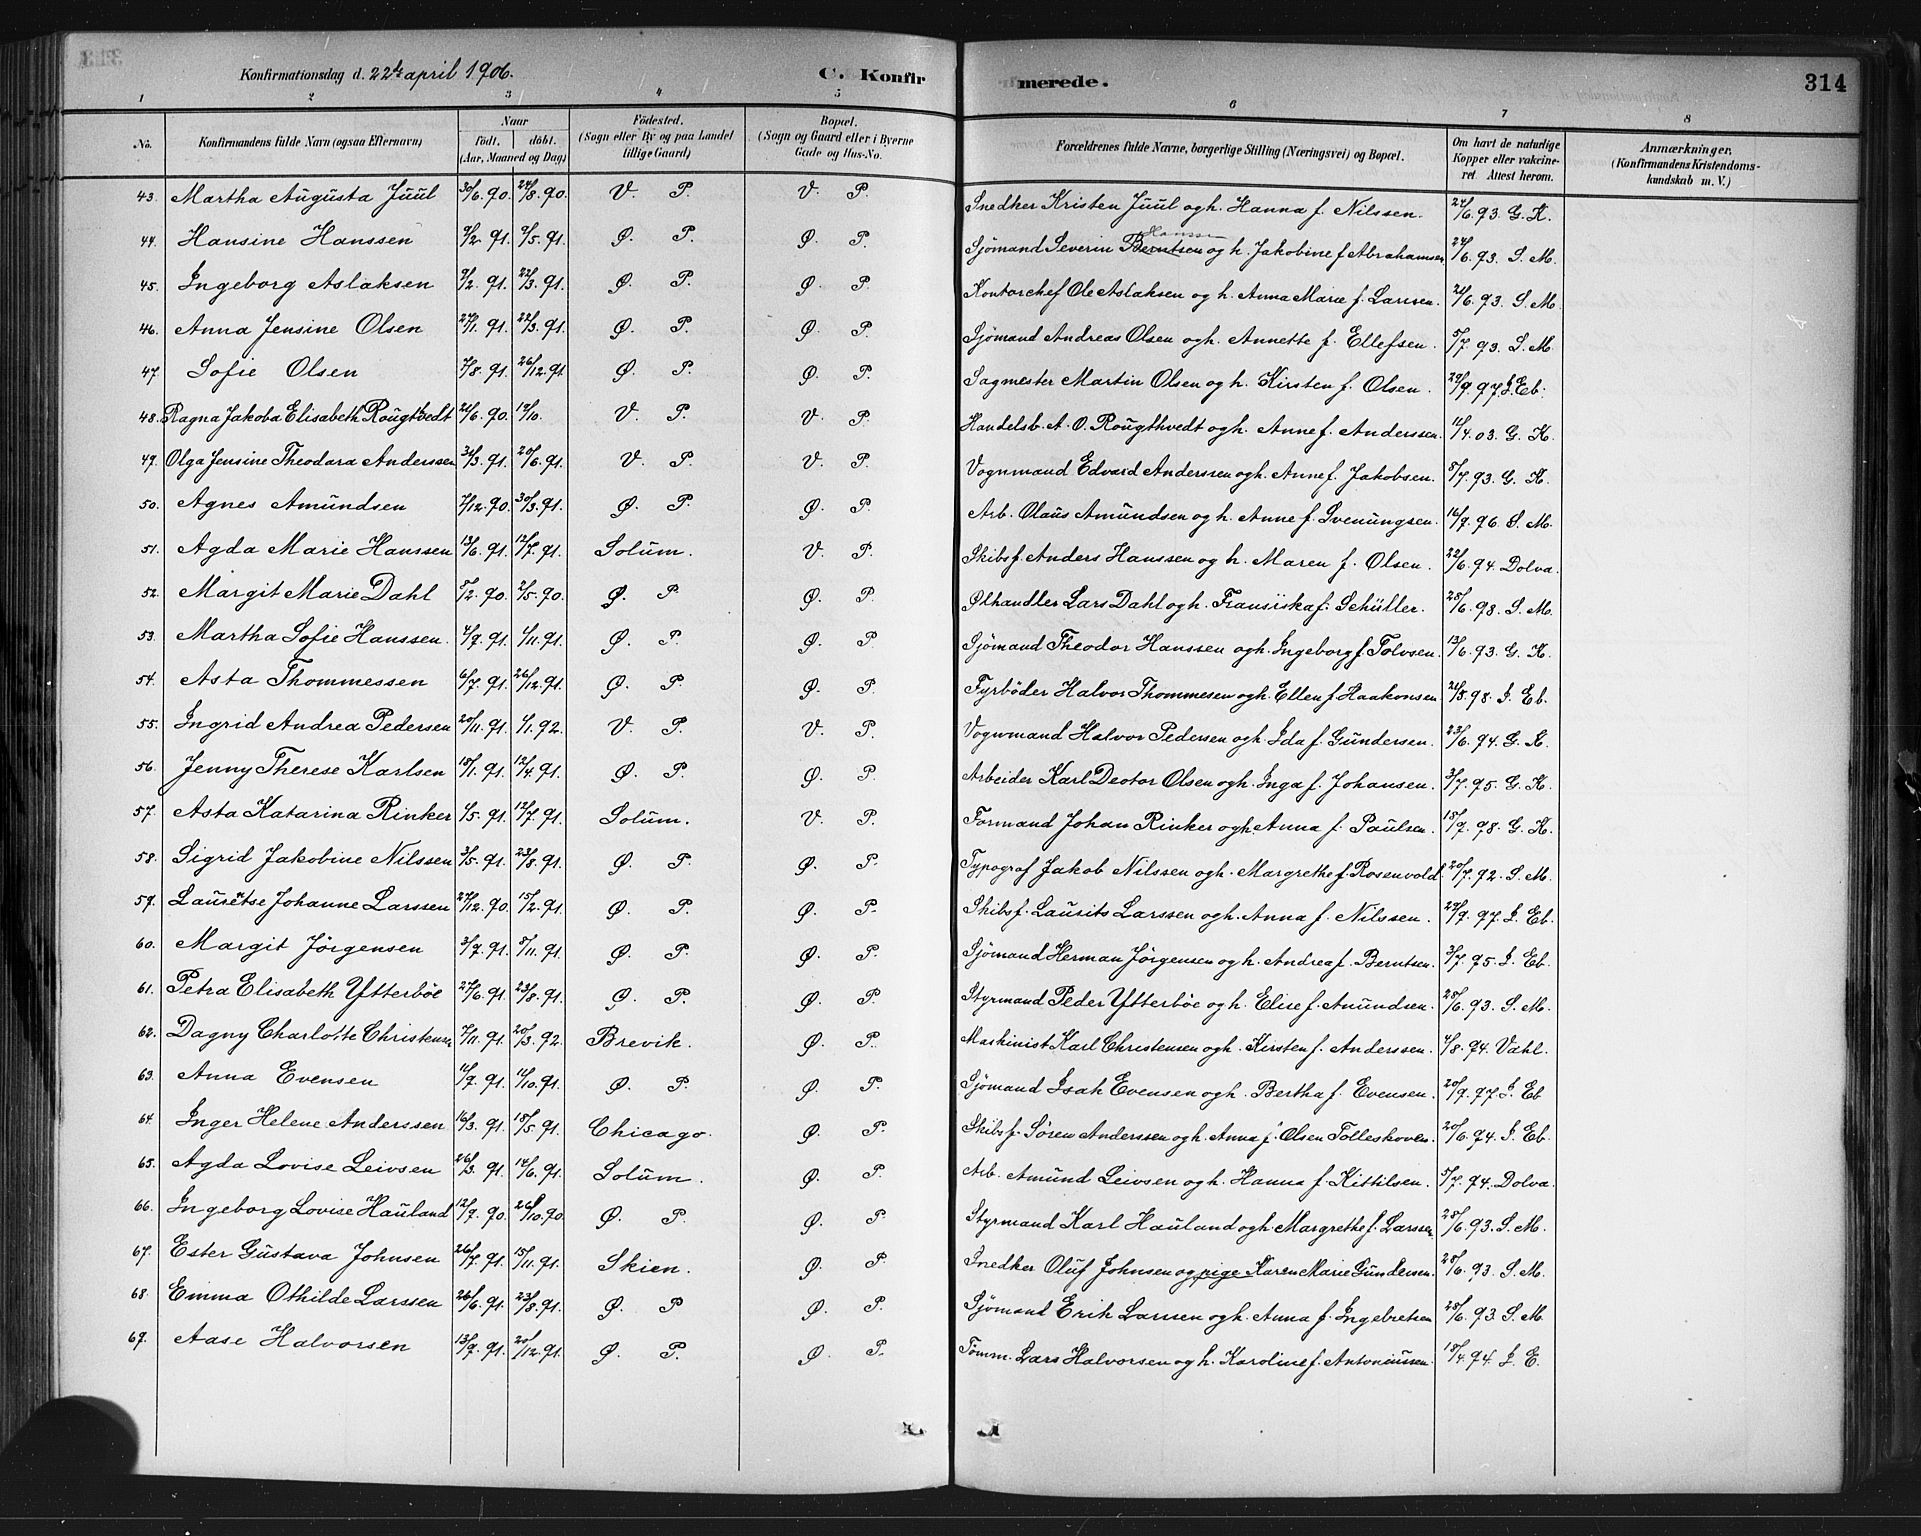 Konfirmationsdag d. 22de april 1906. C. Konfirmerede. 314
1 2 3 4 5 6 7 8
No. Konfirmandens fulde Navn (ogsaa Efternavn) Naar født. døbt. (Aar, Maaned og Dag) Fødested. (Sogn eller By og paa Landet tillige Gaard) Bopæl. (Sogn og Gaard eller i Byerne Gade og Hus-No. Forældrenes fulde Navne, borgerlige Stilling (Næringsvei) og Bopæl. Om havt de naturlige Kopper eller vakcineret. Attest herom. Anmærkninger, (Konfirmandens Kristendomskundskab m. V.)
43. Martha Augusta Juul 30/6 90. 24/8. 90. V. P. V. P. Snedker Kristen Juul og h. Hanna f. Nilssen. 24/6. 93. G. K.
44. Hansine Hanssen 7/2 91. 7/5. 91. Ø. P. Ø. P. Sjømand Severin Berntsen Hanssen og h. Jakobine f Abrahamsen 24/6. 93. S. M.
45. Ingeborg Aslaksen 9/2. 91. 22/3. 91. Ø. P. Ø. P. Kontorchef Ole Aslaksen og h. Anna Marie f. Larssen. 21/6. 93. S. M
46. Anna Jensine Olsen 27/1. 91. 22/3. 91. Ø. P. Ø. P. Sjømand Andreas Olsen og h. Annette f. Ellefsen. 5/7 93. S. M.
47. Sofie Olsen 7/8. 91. 26/12. 91. Ø. P. Ø. P. Sagmester Martin Olsen og h. Kirsten f. Olsen. 29/9 97. J. Eb.
48. Ragna Jakoba Elisabeth Rougtvedt 21/6. 90. 19/10. V. P. V. P. Handelsb. A. O. Rougthvedt og h. Anne f. Anderssen. 12/4. 03. G. K.
49. Olga Jensine Theodora Anderssen 31/3. 91. 20/6. 91. V. P. V. P. Vognmand Edvard Anderssen og h. Anne f. Jakobsen. 5/7. 93. G. K.
50. Agnes Amundsen 7/12. 90. 30/3. 91. Ø. P. Ø. P. Arb. Olaus Amundsen og h. Anne f. Svenungsen. 16/9. 96. S. M.
51. Agda Marie Hanssen 13/6. 91. 12/7. 91. Solum. V. P. Skibsf. Anders Hanssen og h. Maren f. Olsen. 22/6. 94. Dolva.
52. Margit Marie Dahl 5/2. 90. 2/5. 90. Ø. P. Ø. P. Ølhandler Lars Dahl og h. Fransiska f. Schüller. 25/6. 98. S. M.
53. Martha Sofie Hanssen. 4/9. 91. 1/11. 91. Ø. P. Ø. P. Sjømand Theodor Hanssen og h. Ingeborg f. Tolvsen. 13/6. 93. G. K.
54. Asta Thommessen 6/7. 91. 26/12. 91. Ø. P. Ø. P. Fyrbøder Halvor Thommesen og h. Ellen f. Haakonsen 21/8. 98. J. Eb.
55. Ingrid Andrea Pedersen 20/11. 91. 1/1. 92. V. P. V. P. Vognmand Halvor Pedersen og h. Ida f. Gundersen. 23/6. 94. G. K.
56. Jenny Therese Karlsen 18/1. 91. 12/4. 91. Ø. P. Ø. P. Arbeider Karl Deotor Olsen og h. Inga f. Johansen. 3/7. 95. G. K.
57. Asta Katarina Rinker 1/5. 91. 12/7. 91. Solum. V. P. Formand Johan Rinker og h Anna f. Paulsen. 15/9. 98. G. K.
58. Sigrid Jakobine Nilssen 3/5. 91. 23/8. 91. Ø. P. Ø. P. Typograf Jakob Nilssen og h. Margrethe f. Rosenvold. 20/7. 92. S. M.
59. Lauretse Johanne Larssen 27/12. 90. 15/2. 91. Ø. P. Ø. P. Skibsf. Lausits Larssen og h. Anna f. Nilssen. 29/9. 97. J. Eb.
60. Margit Jörgensen 3/9. 91. 8/11. 91. Ø. P. Ø. P. Sjømand Herman Jörgensen og h. Andrea f. Berntsen. 3/7. 95. J. Eb.
61. Petra Elisabeth Ytterböe 27/6. 91. 23/8. 91. Ø. P. Ø. P. Styrmand Peder Ytterböe og h. Elise f. Amundsen. 28/6. 93. S. M.
62. Dagny Charlotte Christensen 7/11. 91. 20/3. 92. Brevik. Ø. P. Maskinist Karl Christensen og h. Kirsten f. Anderssen. 4/8. 94. Vahl.
63. Anna Evensen 11/9. 91. 11/10. 91. Ø. P. Ø. P. Sjømand Isak Evensen og h. Bertha f. Evensen. 20/9. 97. J. Eb
64. Inger Helene Anderssen 16/3. 91. 18/5. 91. Chicago. Ø. P. Skibsf. Sören Anderssen og h. Anna f. Olsen Tolleshoven. 20/6. 94. J. Eb.
65. Agda Lovise Leivsen 26/3. 91. 14/6. 91. Solum. Ø. P. Arb. Amund Leivsen og h. Hanna f. Kittilsen. 5/7. 94. Dolva.
66. Ingeborg Lovise Hauland 12/9. 90. 26/10. 90. Ø. P. Ø. P. Styrmand Karl Hauland og h Margrethe f. Larssen 28/6. 93. S. M.
67. Ester Gustava Johnsen 26/7. 91. 15/11. 91. Skien. Ø. P. Snedker Oluf Johnsen og pige Karen Marie Gundersen. 28/6. 93. S. M.
68. Emma Othilde Larssen 26/6. 91. 23/8. 91. Ø. P Ø. P. Sjømand Erik Larssen og h. Anna f. Ingebretsen 28/6. 93. S. M.
69. Aase Halvorsen 13/9. 91. 20/12. 91. Ø. P. Ø. P. Tømm. Lars Halvorsen og h. Karoline f. Antoniussen. 18/4. 94. J. E.